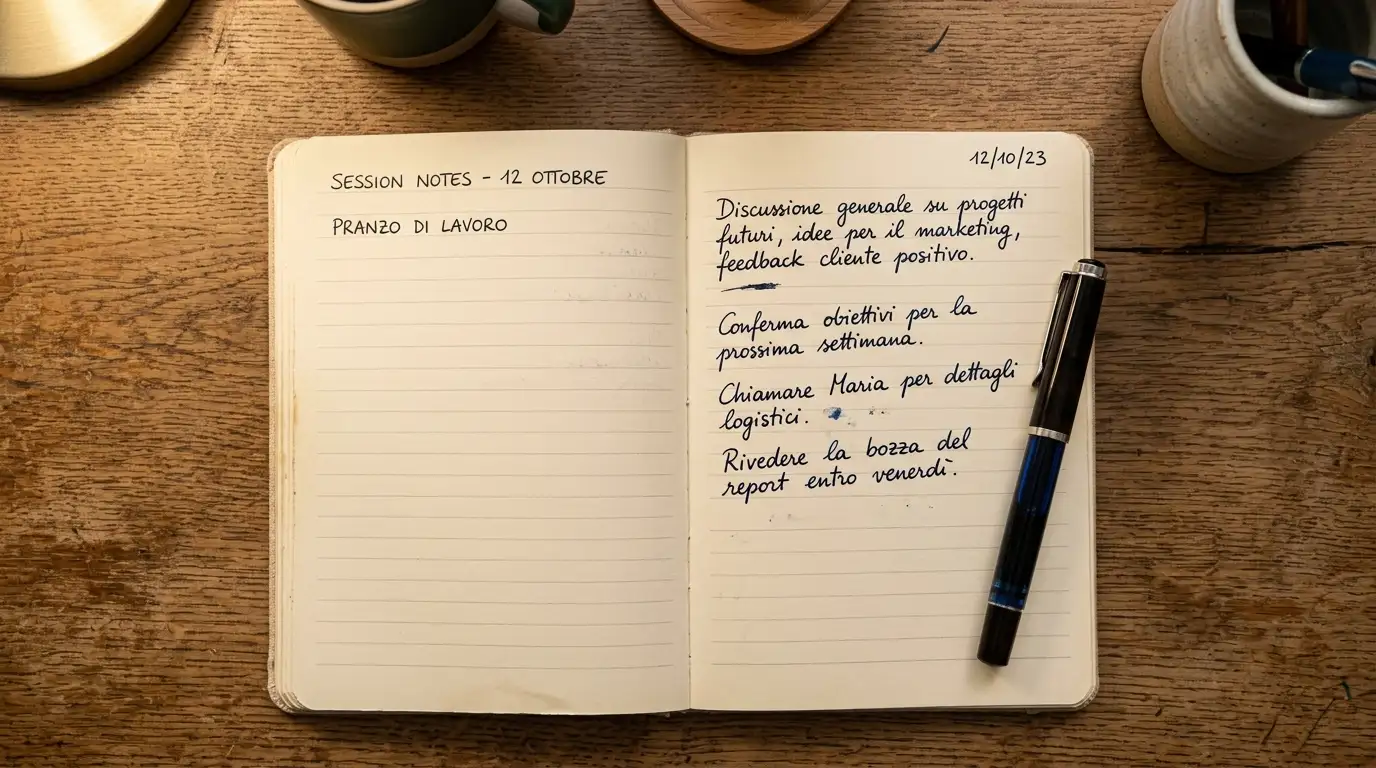 SESSION NOTES - 12 OTTOBRE
PRANZO DI LAVORO
12/10/23
Discussione generale su progetti
futuri, idee per il marketing,
feedback cliente positivo.
Conferma obiettivi per la
prossima settimana.
Chiamare Maria per dettagli
logistici.
Rivedere la bozza del
report entro venerdì.